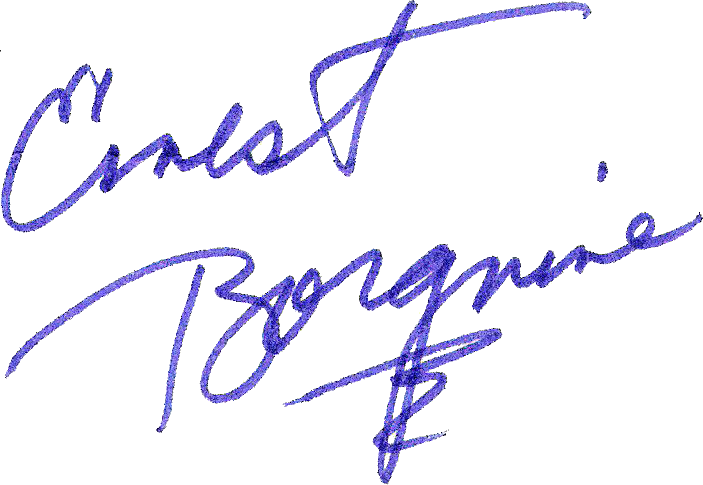 Ernest
Borgnine